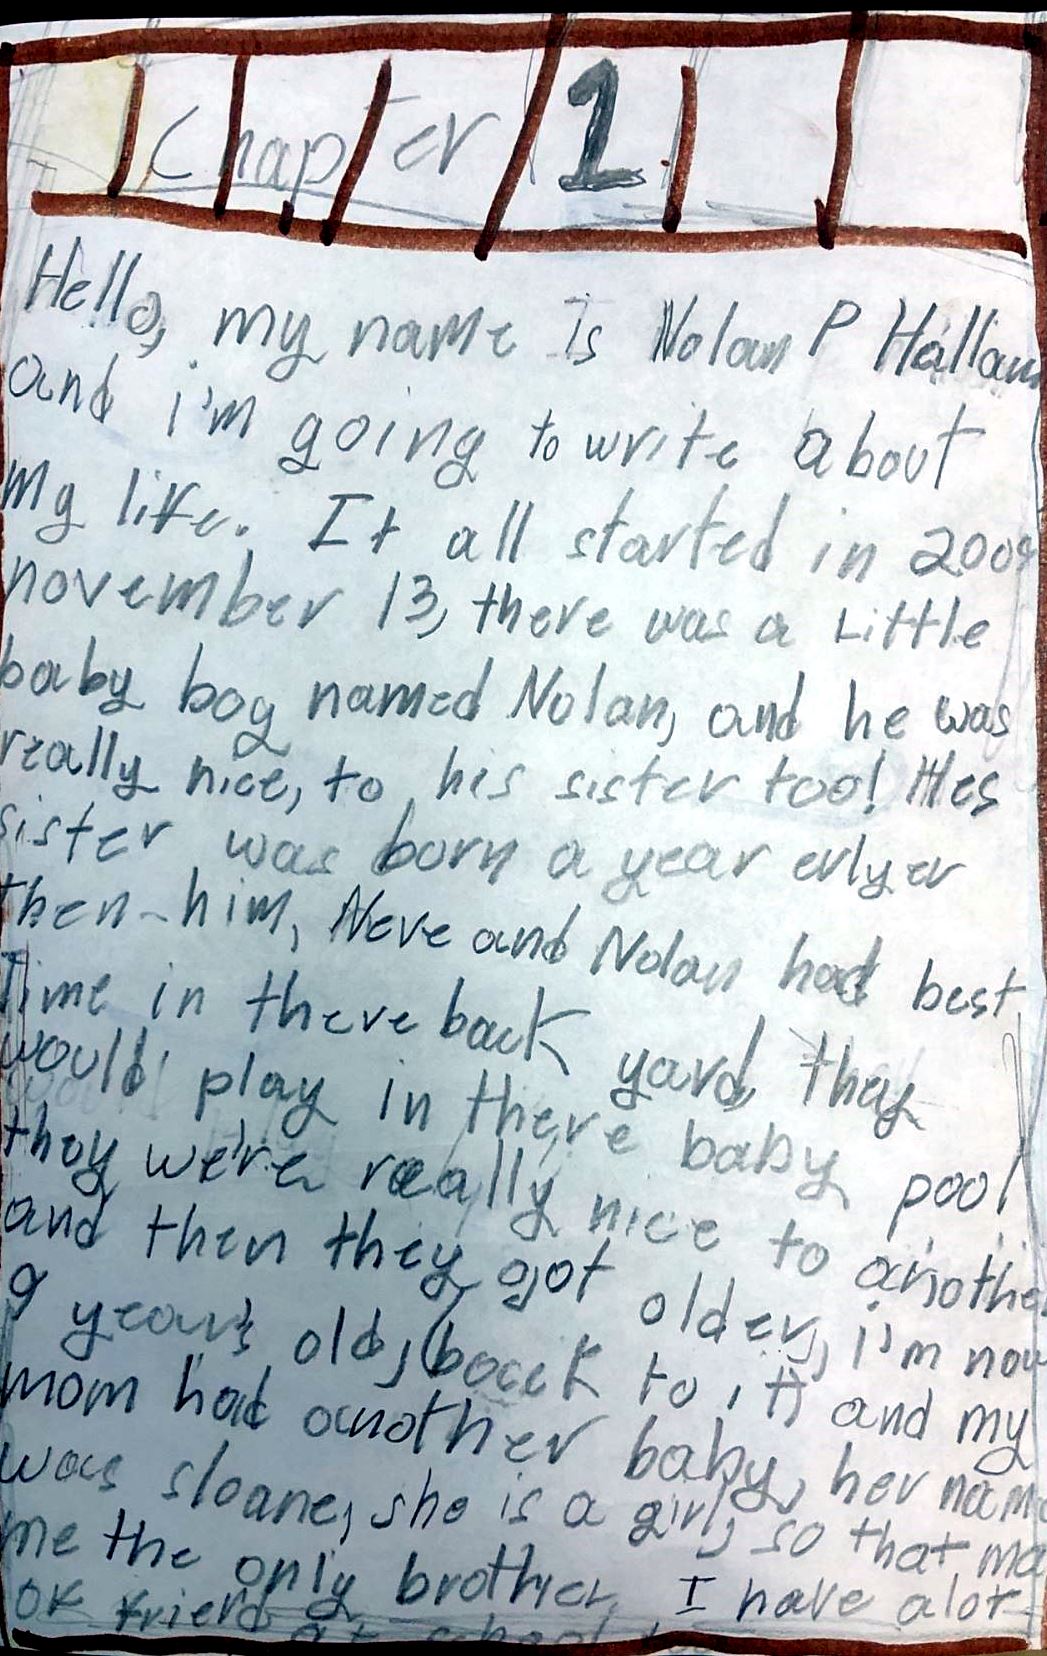 Chapter 1
Hello, my name is Nolan P Hallam
and i'm going to write about
my life. It all started in 2009
november 13, there was a Little
baby boy named Nolan, and he was
really nice, to his sister too! Hes
sister was born a year erlyer
then him, Neve and Nolan had best
Time in there back yard, they
would play in there baby pool
they we're really nice to another
and then they got older, i'm now
9 years old, back to it, and my
mom had another baby, her name
was sloane, she is a girl, so that ma
me the only brother. I have alot
of friend
at school